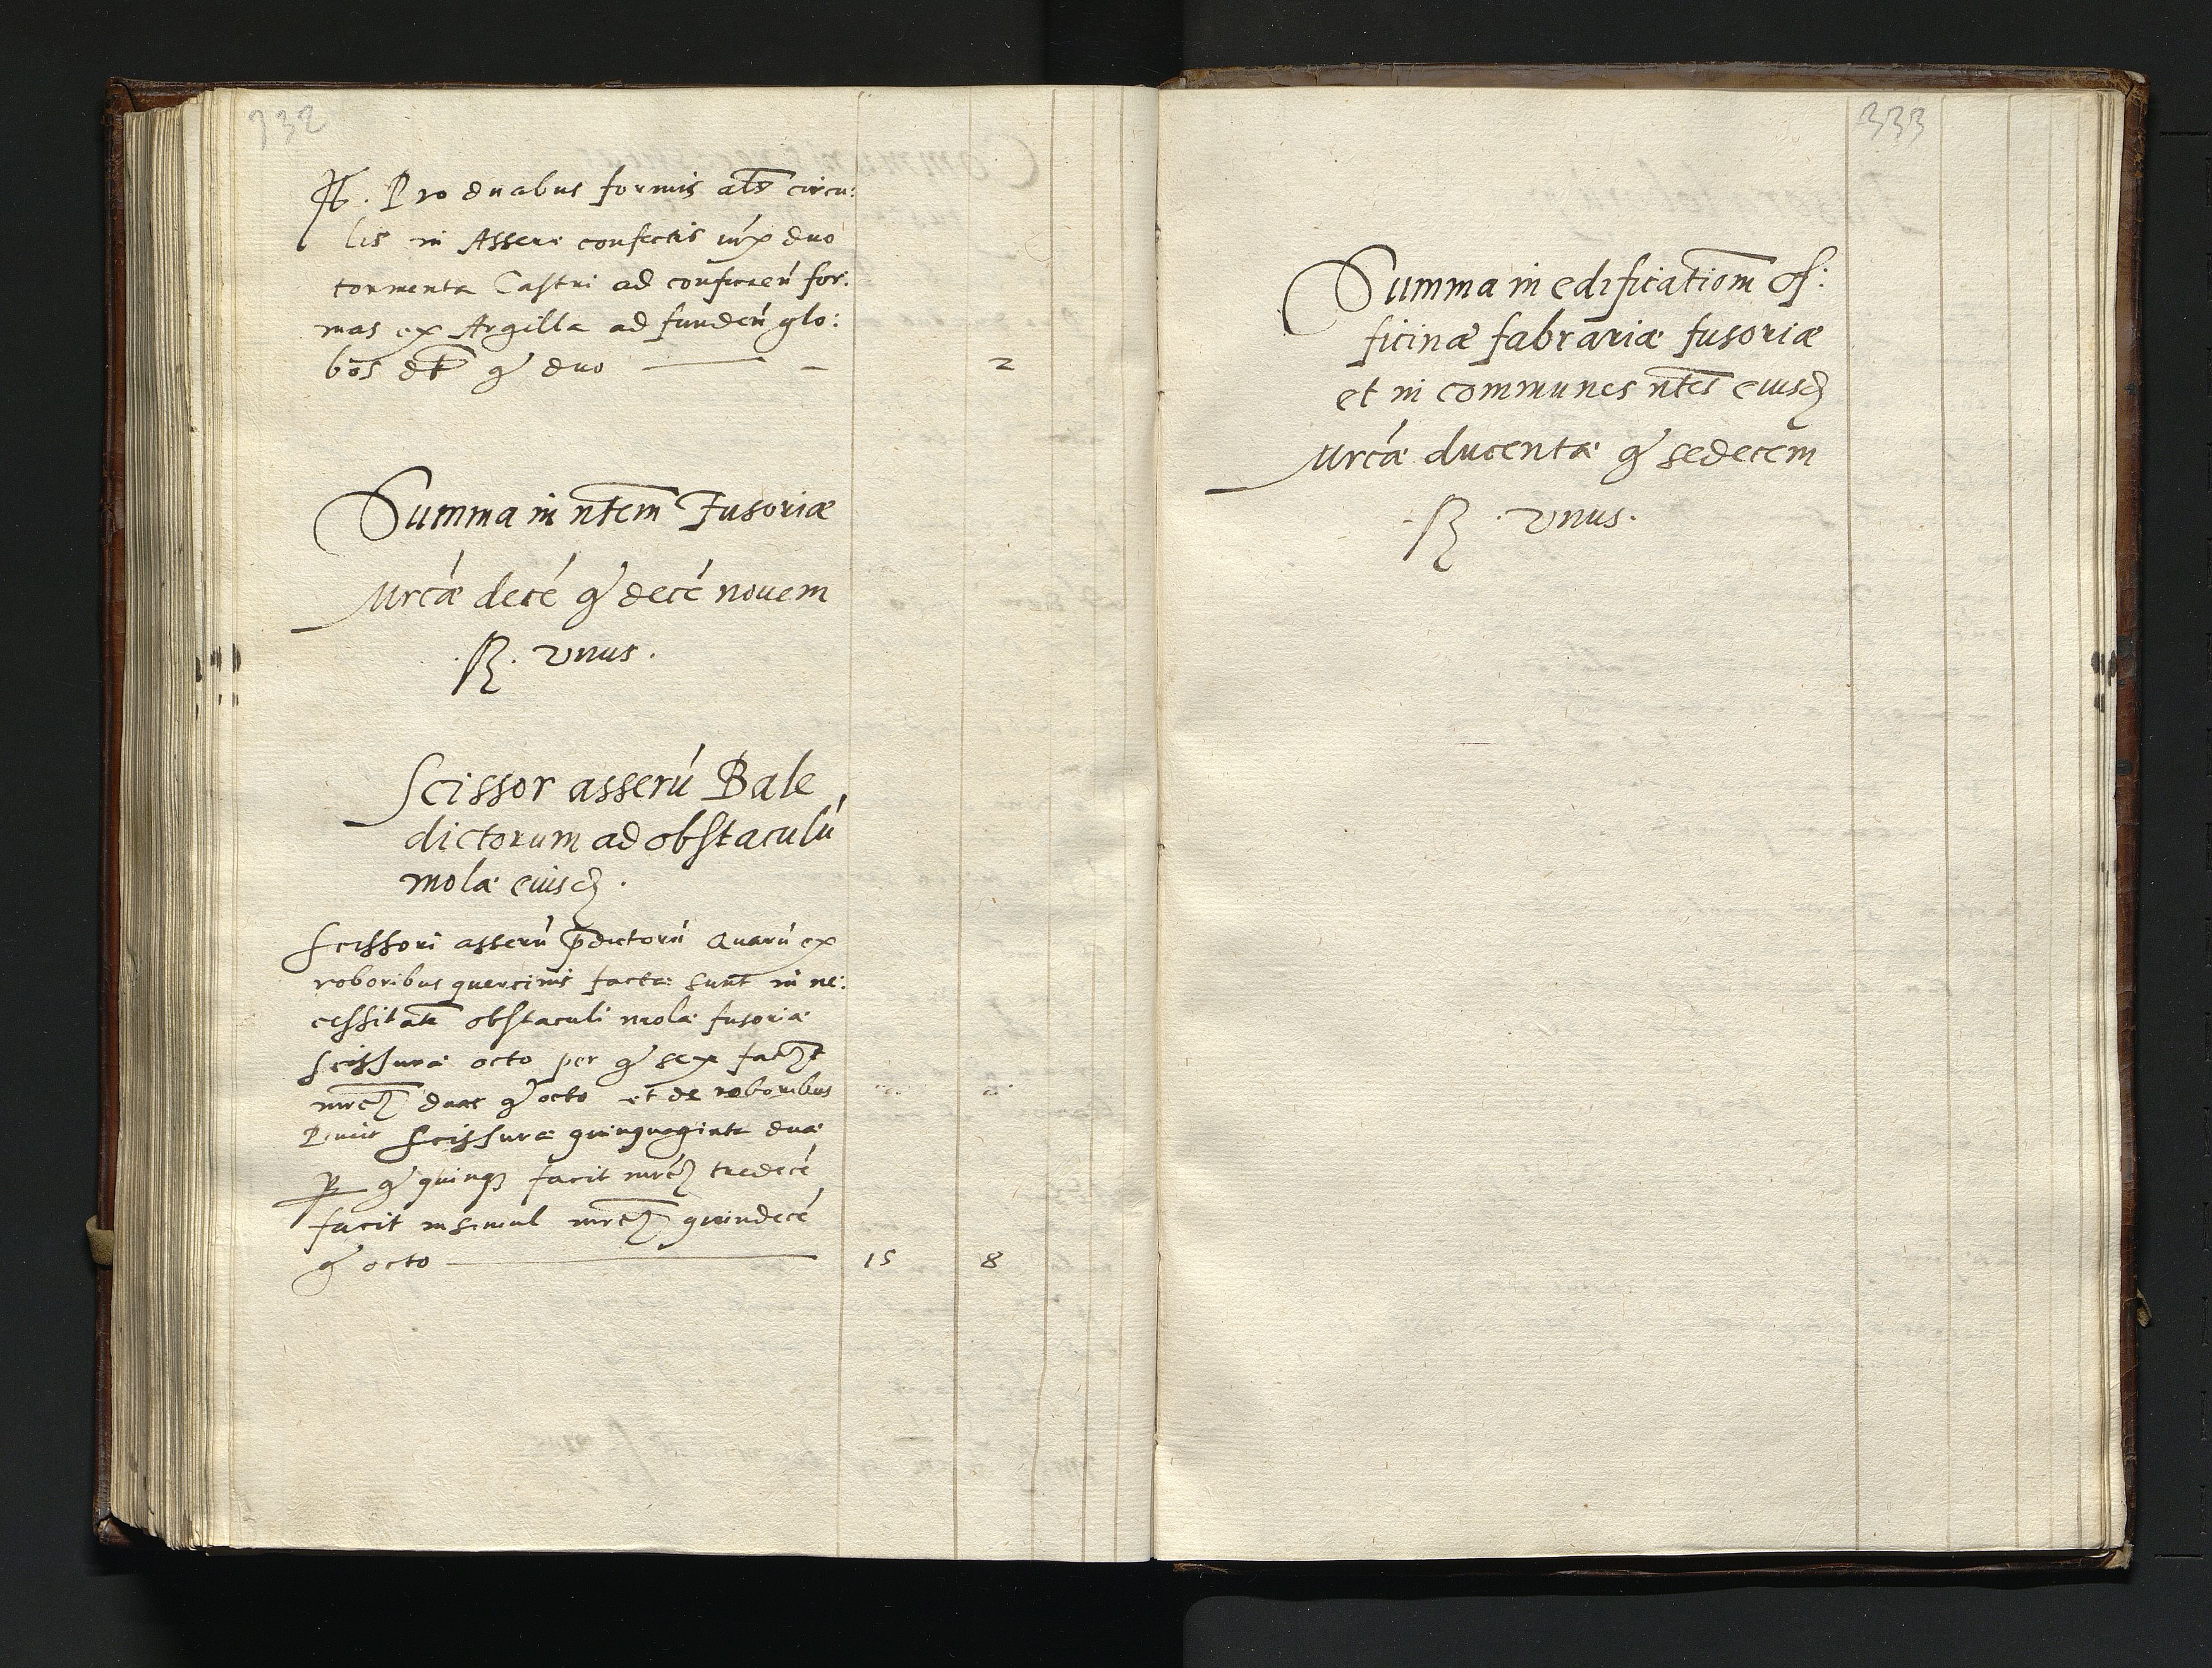 332
It. Pro duabus formis als circu:
lis in Assere confectis iux duo
tormenta Castri ad conficien for:
mas ex Argilla ad funden glo:
bos dt g duo — 2
Summa in ntem Fusoriæ
Mrcæ decé g decé novem
ß. vnus.
Scissor asserú Bale
dictorum ad obstaculú
molæ eiusd.
Scissori asserú pdictorú quarú ex
roboribus quercinis factæ sunt in ne:
cessitate obstaculi molæ fusoriæ
scissuræ octo per g sex facit
mrc duas g octo et de roboribus
scissuræ quinquaginta duæ
p g quinq facit mrc tredecé
facit insimul mrc quindecé
g octo — 15 8
333
Summa in edificationem of:
ficinæ fabrariæ fusoriæ
et in communes ntes eiusd
Mrcæ ducentæ g sedecem
ß. vnus.